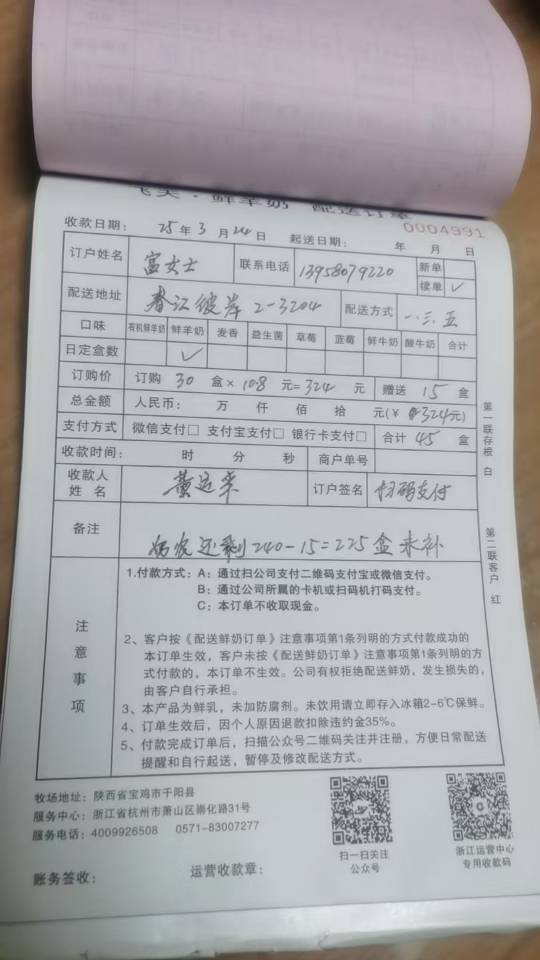 鲜羊奶 配送订单
0004991
收款日期： 25 年 3 月 24 日 起送日期： 年 月 日
订户姓名 富女士 联系电话 13958079220 新单
接单 ✓
配送地址 春江彼岸 2-3204 配送方式 一.三.五
口味 有机鲜羊奶 鲜羊奶 麦香 益生菌 草莓 蓝莓 鲜牛奶 酸牛奶 合计
日定盒数 ✓
订购价 订购 30 盒× 10.8 元= 324 元 赠送 15 盒
总金额 人民币： 万 仟 佰 拾 元(￥ 324元)
支付方式 微信支付□ 支付宝支付□ 银行卡支付□ 合计 45 盒
收款时间： 时 分 秒 商户单号
收款人姓名 黄运来 订户签名 扫码支付
备注 还剩 240-15=225 盒未补
注意事项
1.付款方式：A：通过扫公司支付二维码支付宝或微信支付。
B：通过公司所属的卡机或扫码机打码支付。
C：本订单不收取现金。
2、客户按《配送鲜奶订单》注意事项第1条列明的方式付款成功的
本订单生效，客户未按《配送鲜奶订单》注意事项第1条列明的方
式付款的，本订单不生效。公司有权拒绝配送鲜奶，发生损失的，
由客户自行承担。
3、本产品为鲜乳，未加防腐剂。未饮用请立即存入冰箱2-6℃保鲜。
4、订单生效后，因个人原因退款扣除违约金35%。
5、付款完成订单后，扫描公众号二维码关注并注册，方便日常配送
提醒和自行起送，暂停及修改配送方式。
第一联存根 白
第二联客户 红
牧场地址：陕西省宝鸡市千阳县
服务中心：浙江省杭州市萧山区崇化路31号
服务电话：4009926508 0571-83007277
扫一扫关注
公众号
浙江运营中心
专用收款码
账务签收： 运营收款章：